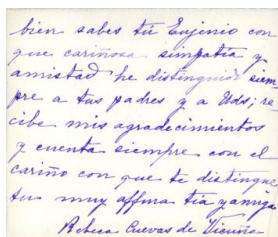 bien sabes tú Eujenio con
que cariñosa simpatía y
amistad he distinguido siem
pre a tus padres y a Uds; re
cibe mis agradecimientos
y cuenta siempre con el
cariño con que te distingue
tu muy affma tía y amiga
Rebeca Cuevas de Vicuña